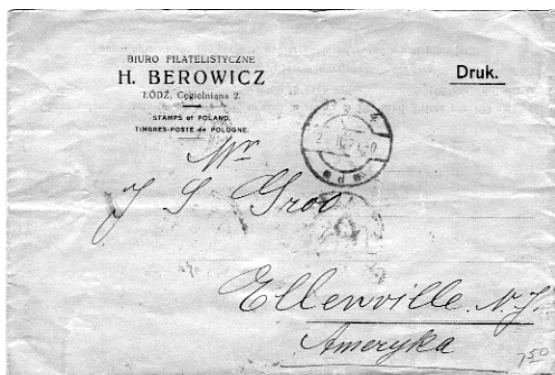 BIURO FILATELISTYCZNE
H. BEROWICZ
ŁÓDŹ, Cegielniana 2.
STAMPS of POLAND.
TIMBRES-POSTE de POLOGNE.
Druk.
Mr
J S Groo
Ellenville N.J.
Ameryka
7 50